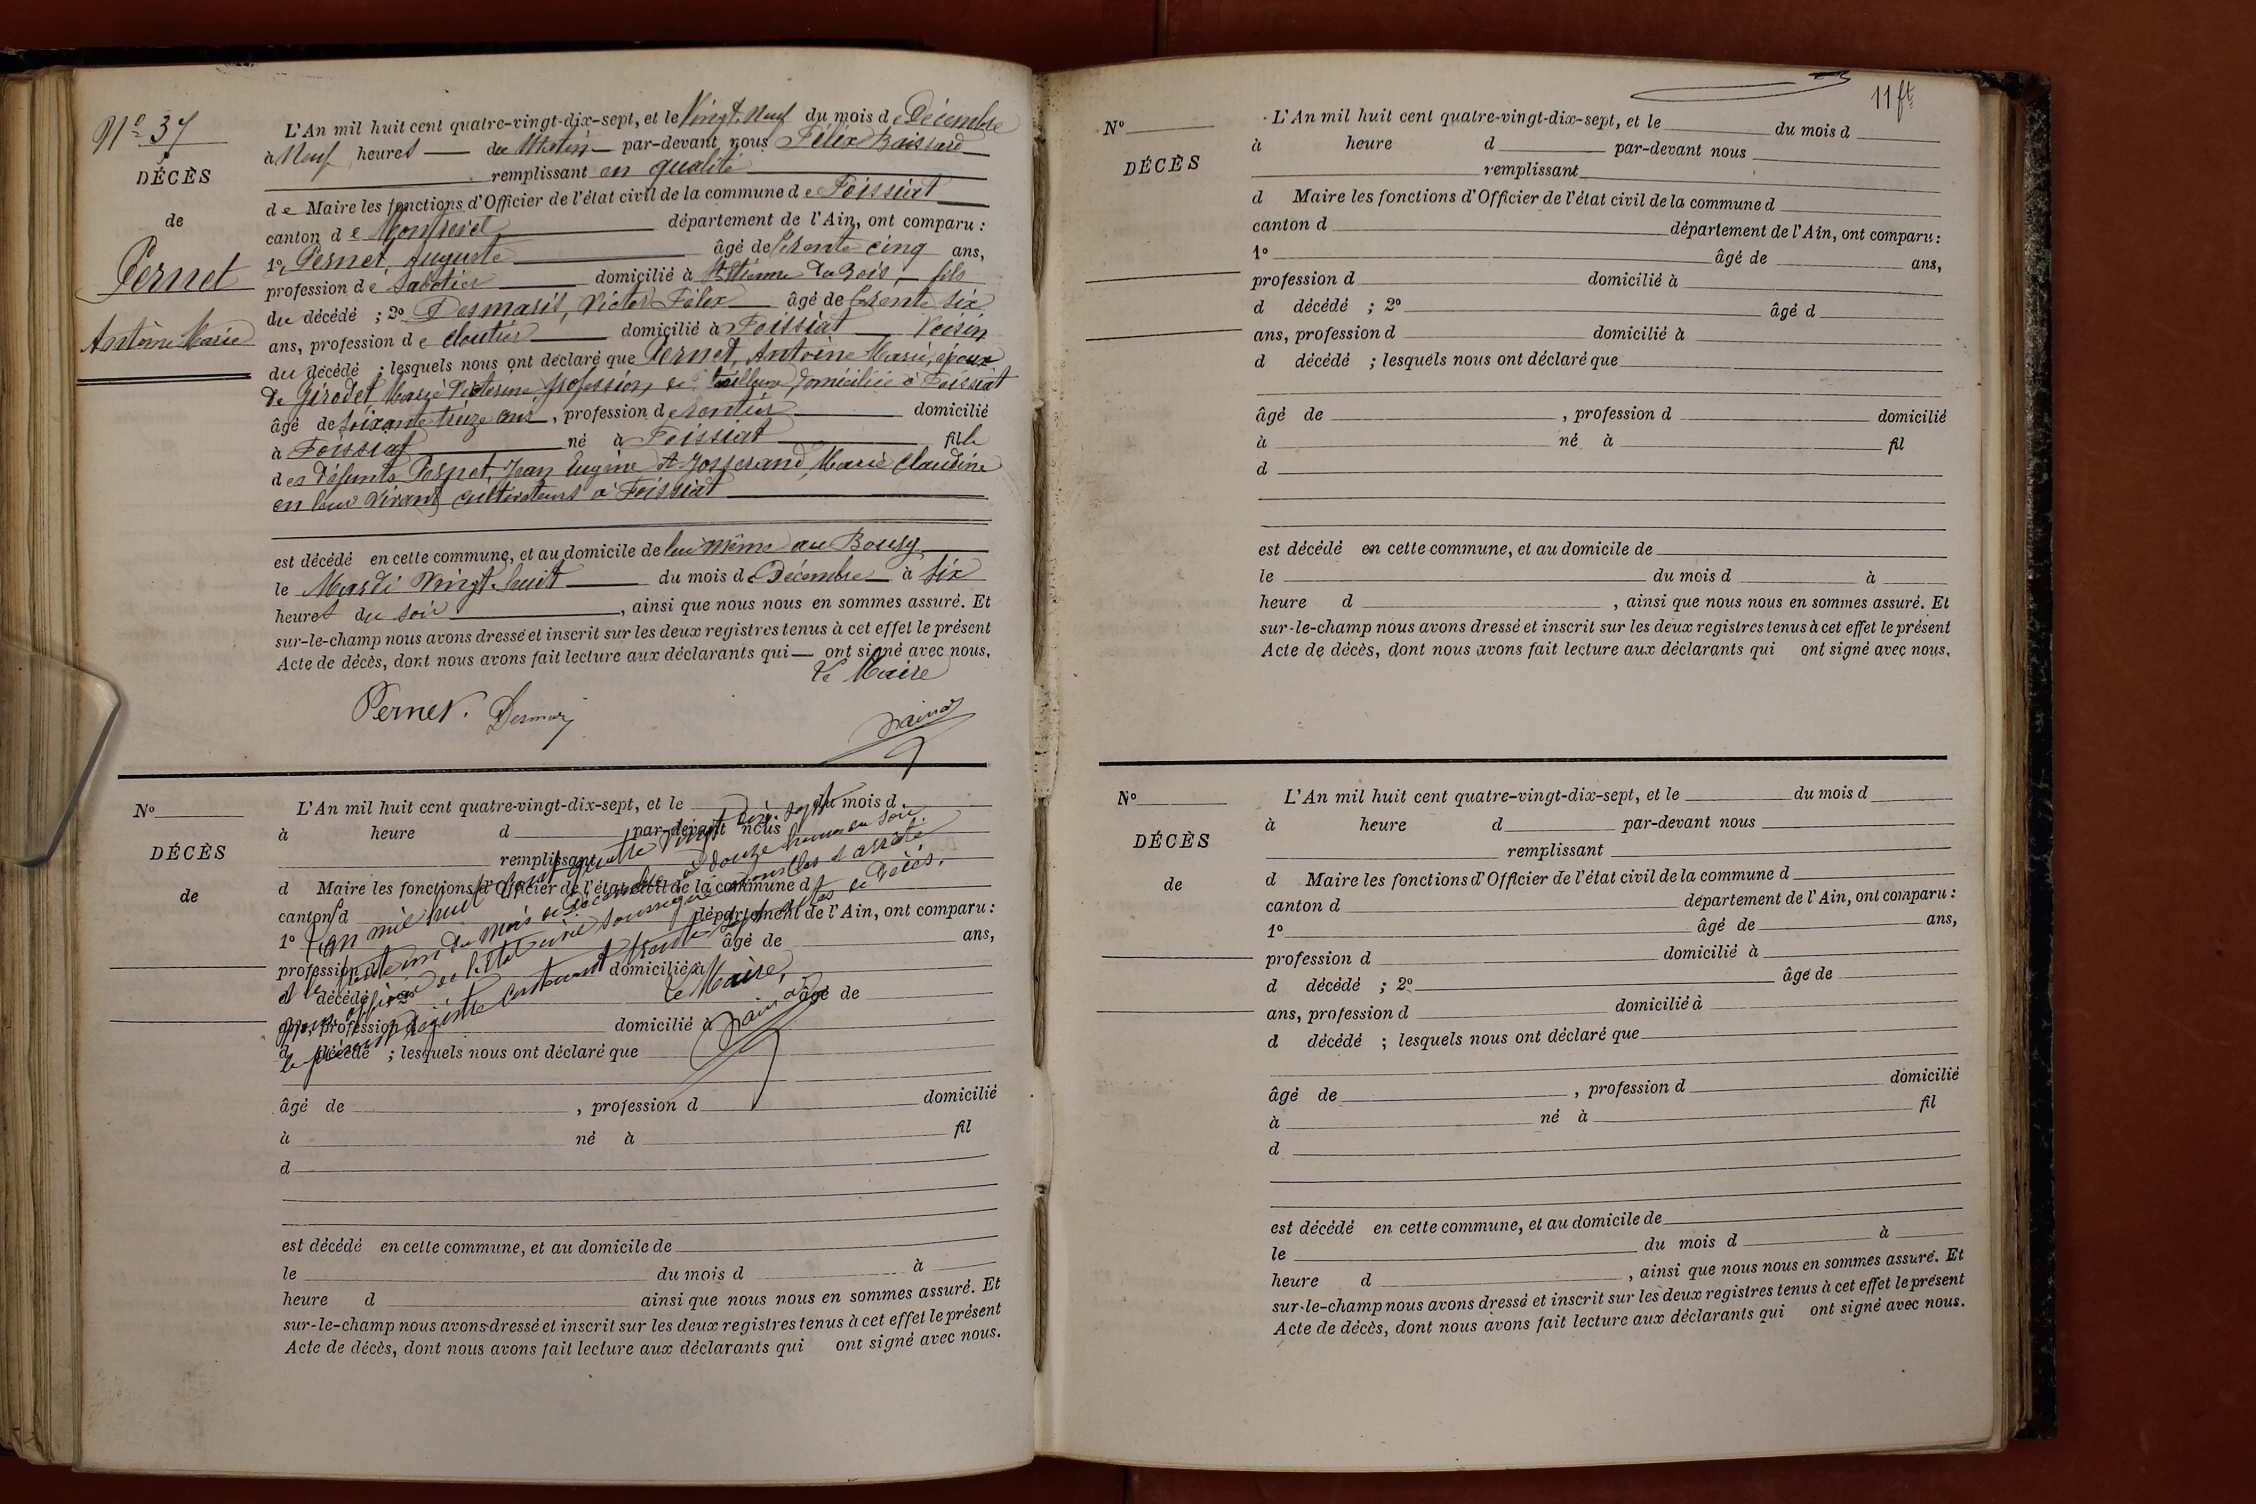 Nº 37
DÉCÈS
de
Pernet
Antoine Marie
L'An mil huit cent quatre-vingt-dix-sept, et le Vingt-Neuf du mois de Décembre
à Neuf heures du Matin par-devant nous Félix
remplissant en qualité
de Maire les fonctions d'Officier de l'état civil de la commune de Foissiat
canton de Montrevel département de l'Ain, ont comparu :
1º Pernet, Auguste âgé de trente cinq ans,
profession de Sabotier domicilié à St Etienne du Bois, fils
du décédé ; 2º Desmaris, Victor Félix âgé de trente six
ans, profession de cloutier domicilié à Foissiat Voisin
du décédé ; lesquels nous ont déclaré que Pernet, Antoine Marie, époux
de Girodet Marie Victorine profession de tailleuse domiciliée à Foissiat
âgé de soixante treize ans, profession de rentier domicilié
à Foissiat né à Foissiat fils
des défunts Pernet, Jean Eugène et Josserand, Marie Claudine
en leur vivant cultivateurs à Foissiat
est décédé en cette commune, et au domicile de lui même au
le Mardi Vingt-huit du mois de Décembre à six
heures du soir, ainsi que nous nous en sommes assuré. Et
sur-le-champ nous avons dressé et inscrit sur les deux registres tenus à cet effet le présent
Acte de décès, dont nous avons fait lecture aux déclarants qui — ont signé avec nous.
Le Maire
Pernet.
Nº
DÉCÈS
de
L'An mil huit cent quatre-vingt-dix-sept, et le du mois d
à heure d par-devant nous
remplissant
d Maire les fonctions d'Officier de l'état civil de la commune d
canton d département de l'Ain, ont comparu :
1º âgé de ans,
profession d domicilié à
d décédé ; 2º âgé de
ans, profession d domicilié à
d décédé ; lesquels nous ont déclaré que
L'an mil huit cent quatre vingt dix-sept
et le trente un du mois de Décembre à douze heures du soir
nous officier de l'état civil soussigné avons clos et arrêté
le présent registre contenant trente sept actes de décès.
Le Maire,
âgé de , profession d domicilié
à né à fil
d
est décédé en cette commune, et au domicile de
le du mois d à
heure d ainsi que nous nous en sommes assuré. Et
sur-le-champ nous avons dressé et inscrit sur les deux registres tenus à cet effet le présent
Acte de décès, dont nous avons fait lecture aux déclarants qui ont signé avec nous.
11 ft
Nº
DÉCÈS
L'An mil huit cent quatre-vingt-dix-sept, et le du mois d
à heure d par-devant nous
remplissant
d Maire les fonctions d'Officier de l'état civil de la commune d
canton d département de l'Ain, ont comparu :
1º âgé de ans,
profession d domicilié à
d décédé ; 2º âgé d
ans, profession d domicilié à
d décédé ; lesquels nous ont déclaré que
âgé de , profession d domicilié
à né à fil
d
est décédé en cette commune, et au domicile de
le du mois d à
heure d , ainsi que nous nous en sommes assuré. Et
sur-le-champ nous avons dressé et inscrit sur les deux registres tenus à cet effet le présent
Acte de décès, dont nous avons fait lecture aux déclarants qui ont signé avec nous.
Nº
DÉCÈS
de
L'An mil huit cent quatre-vingt-dix-sept, et le du mois d
à heure d par-devant nous
remplissant
d Maire les fonctions d'Officier de l'état civil de la commune d
canton d département de l'Ain, ont comparu :
1º âgé de ans,
profession d domicilié à
d décédé ; 2º âgé de
ans, profession d domicilié à
d décédé ; lesquels nous ont déclaré que
âgé de , profession d domicilié
à né à fil
d
est décédé en cette commune, et au domicile de
le du mois d à
heure d , ainsi que nous nous en sommes assuré. Et
sur-le-champ nous avons dressé et inscrit sur les deux registres tenus à cet effet le présent
Acte de décès, dont nous avons fait lecture aux déclarants qui ont signé avec nous.